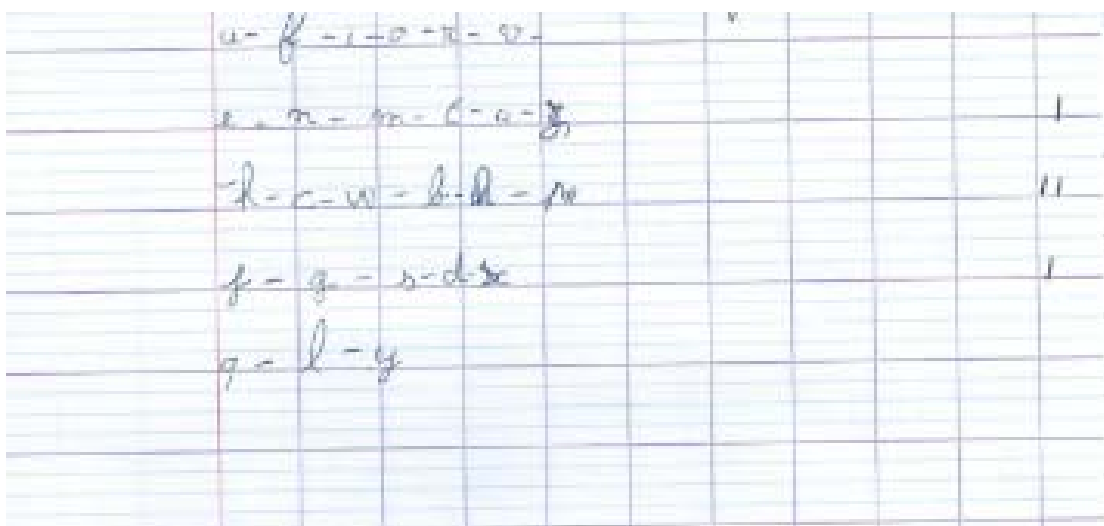 u - f - i - o - r - v -
e - n - m - t - a - z
- k - c - w - b - h - p
f - g - s - d - x
q - l - y